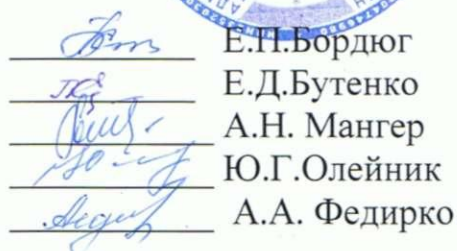 Е.П.Бордюг
Е.Д.Бутенко
А.Н. Мангер
Ю.Г.Олейник
А.А. Федирко